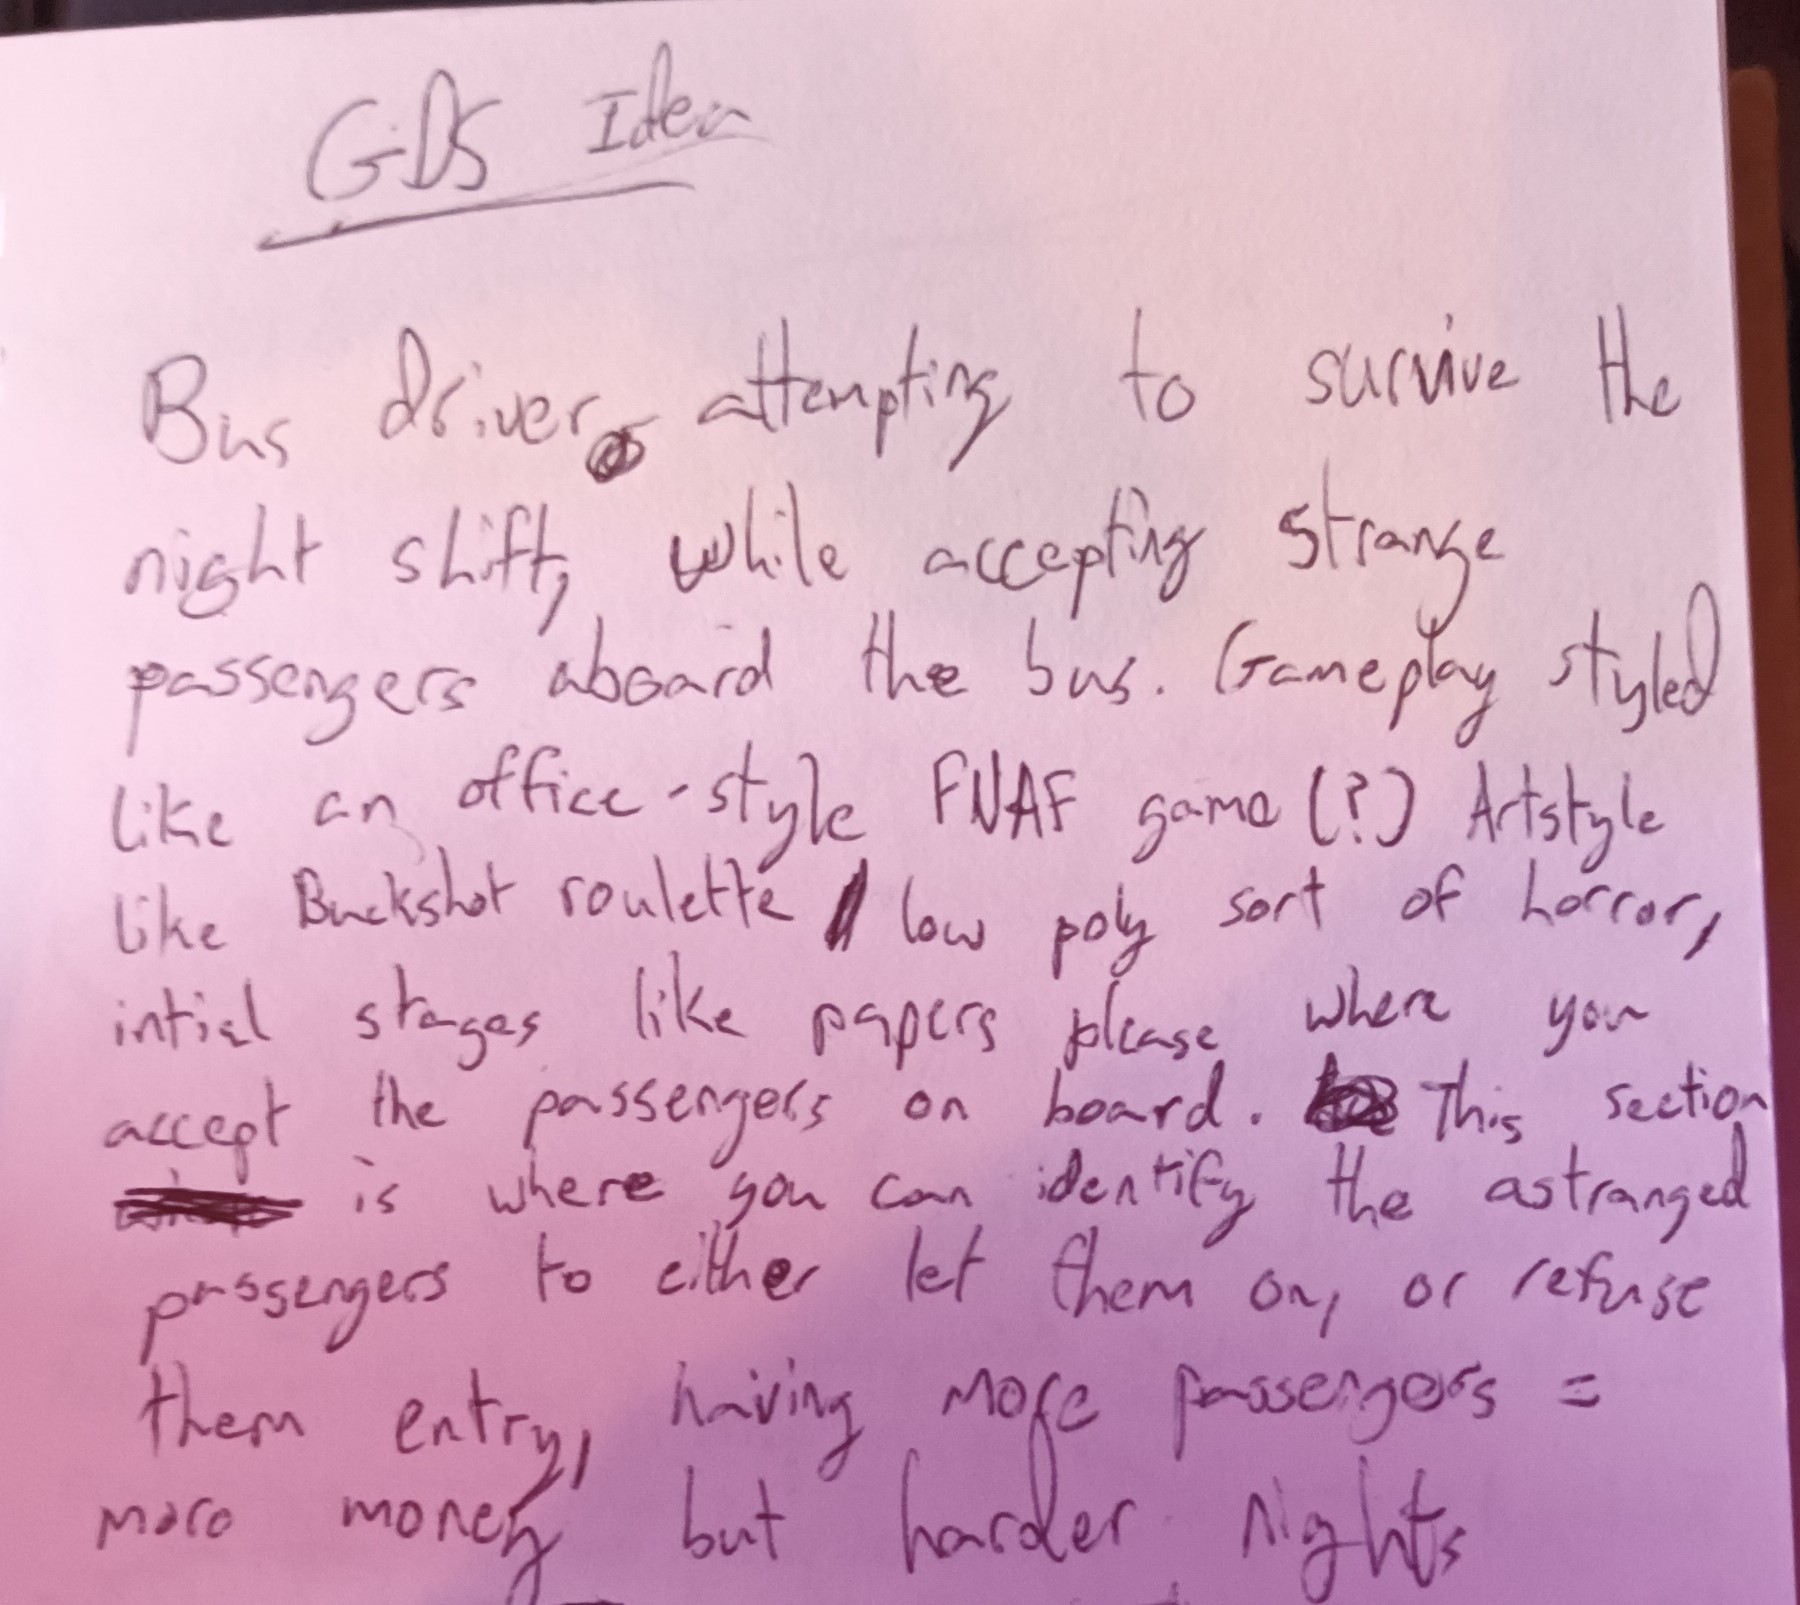 GDS Idea
Bus driver attempting to survive the
night shift, while accepting strange
passengers aboard the bus. Gameplay styled
like an office-style FNAF game (?) Artstyle
like Buckshot roulette / low poly sort of horror,
intial stages like papers please where you
accept the passengers on board. This section
is where you can identify the astranged
passengers to either let them on, or refuse
them entry, having more passengers =
more money but harder nights